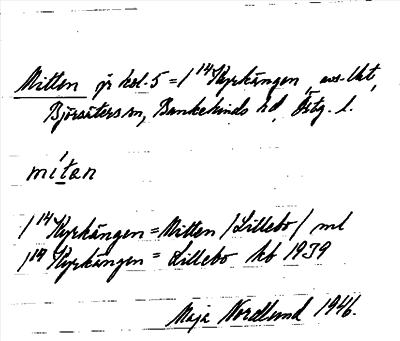 Mitten gr kol. 5 = 1¹⁴ Kyrkängen, avs. lht,
Björsäters sn, Bankekinds hd, Östg. l.
mítan
1¹⁴ Kyrkängen = Mitten /Lillebo/ ml
1¹⁴ Kyrkängen = Lillebo kb 1939
Maja Nordlund 1946.